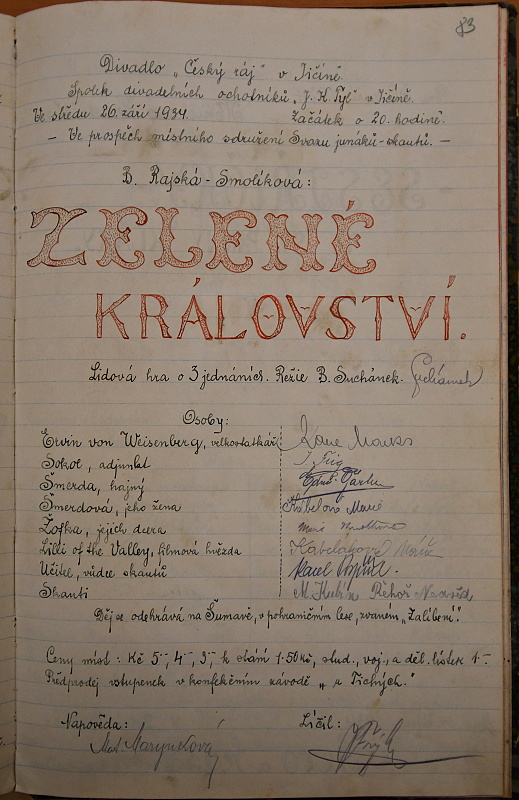 83
Divadlo „Český ráj" v Jičíně.
Spolek divadelních ochotníků „J. K. Tyl" v Jičíně.
Ve středu 26. září 1934. Začátek o 20. hodině.
— Ve prospěch místního sdružení Svazu junáků-skautů. —
B. Rajská-Smolíková:
ZELENÉ
KRÁLOVSTVÍ.
Lidová hra o 3 jednáních. Režie B. Suchánek. Suchánek
Osoby:
Ervín von Weisenberg, velkostatkář
Sokol, adjunkt
Šmerda, hajný
Šmerdová, jeho žena Kábelová Marie
Žofka, jejich dcera
Lilli of the Valley, filmová hvězda Marie
Učitel, vůdce skautů Karel
Skauti M. Kubík Řehoř
Děj se odehrává na Šumavě, v pohraničním lese, zvaném „Zalíbení".
Ceny míst: Kč 5·-, 4·-, 3·- k stání 1·50 Kč, stud., voj., a děl. lístek 1·-.
Předprodej vstupenek v konfekčním závodě „u Tichných."
Napověda: Líčil:
Marynková